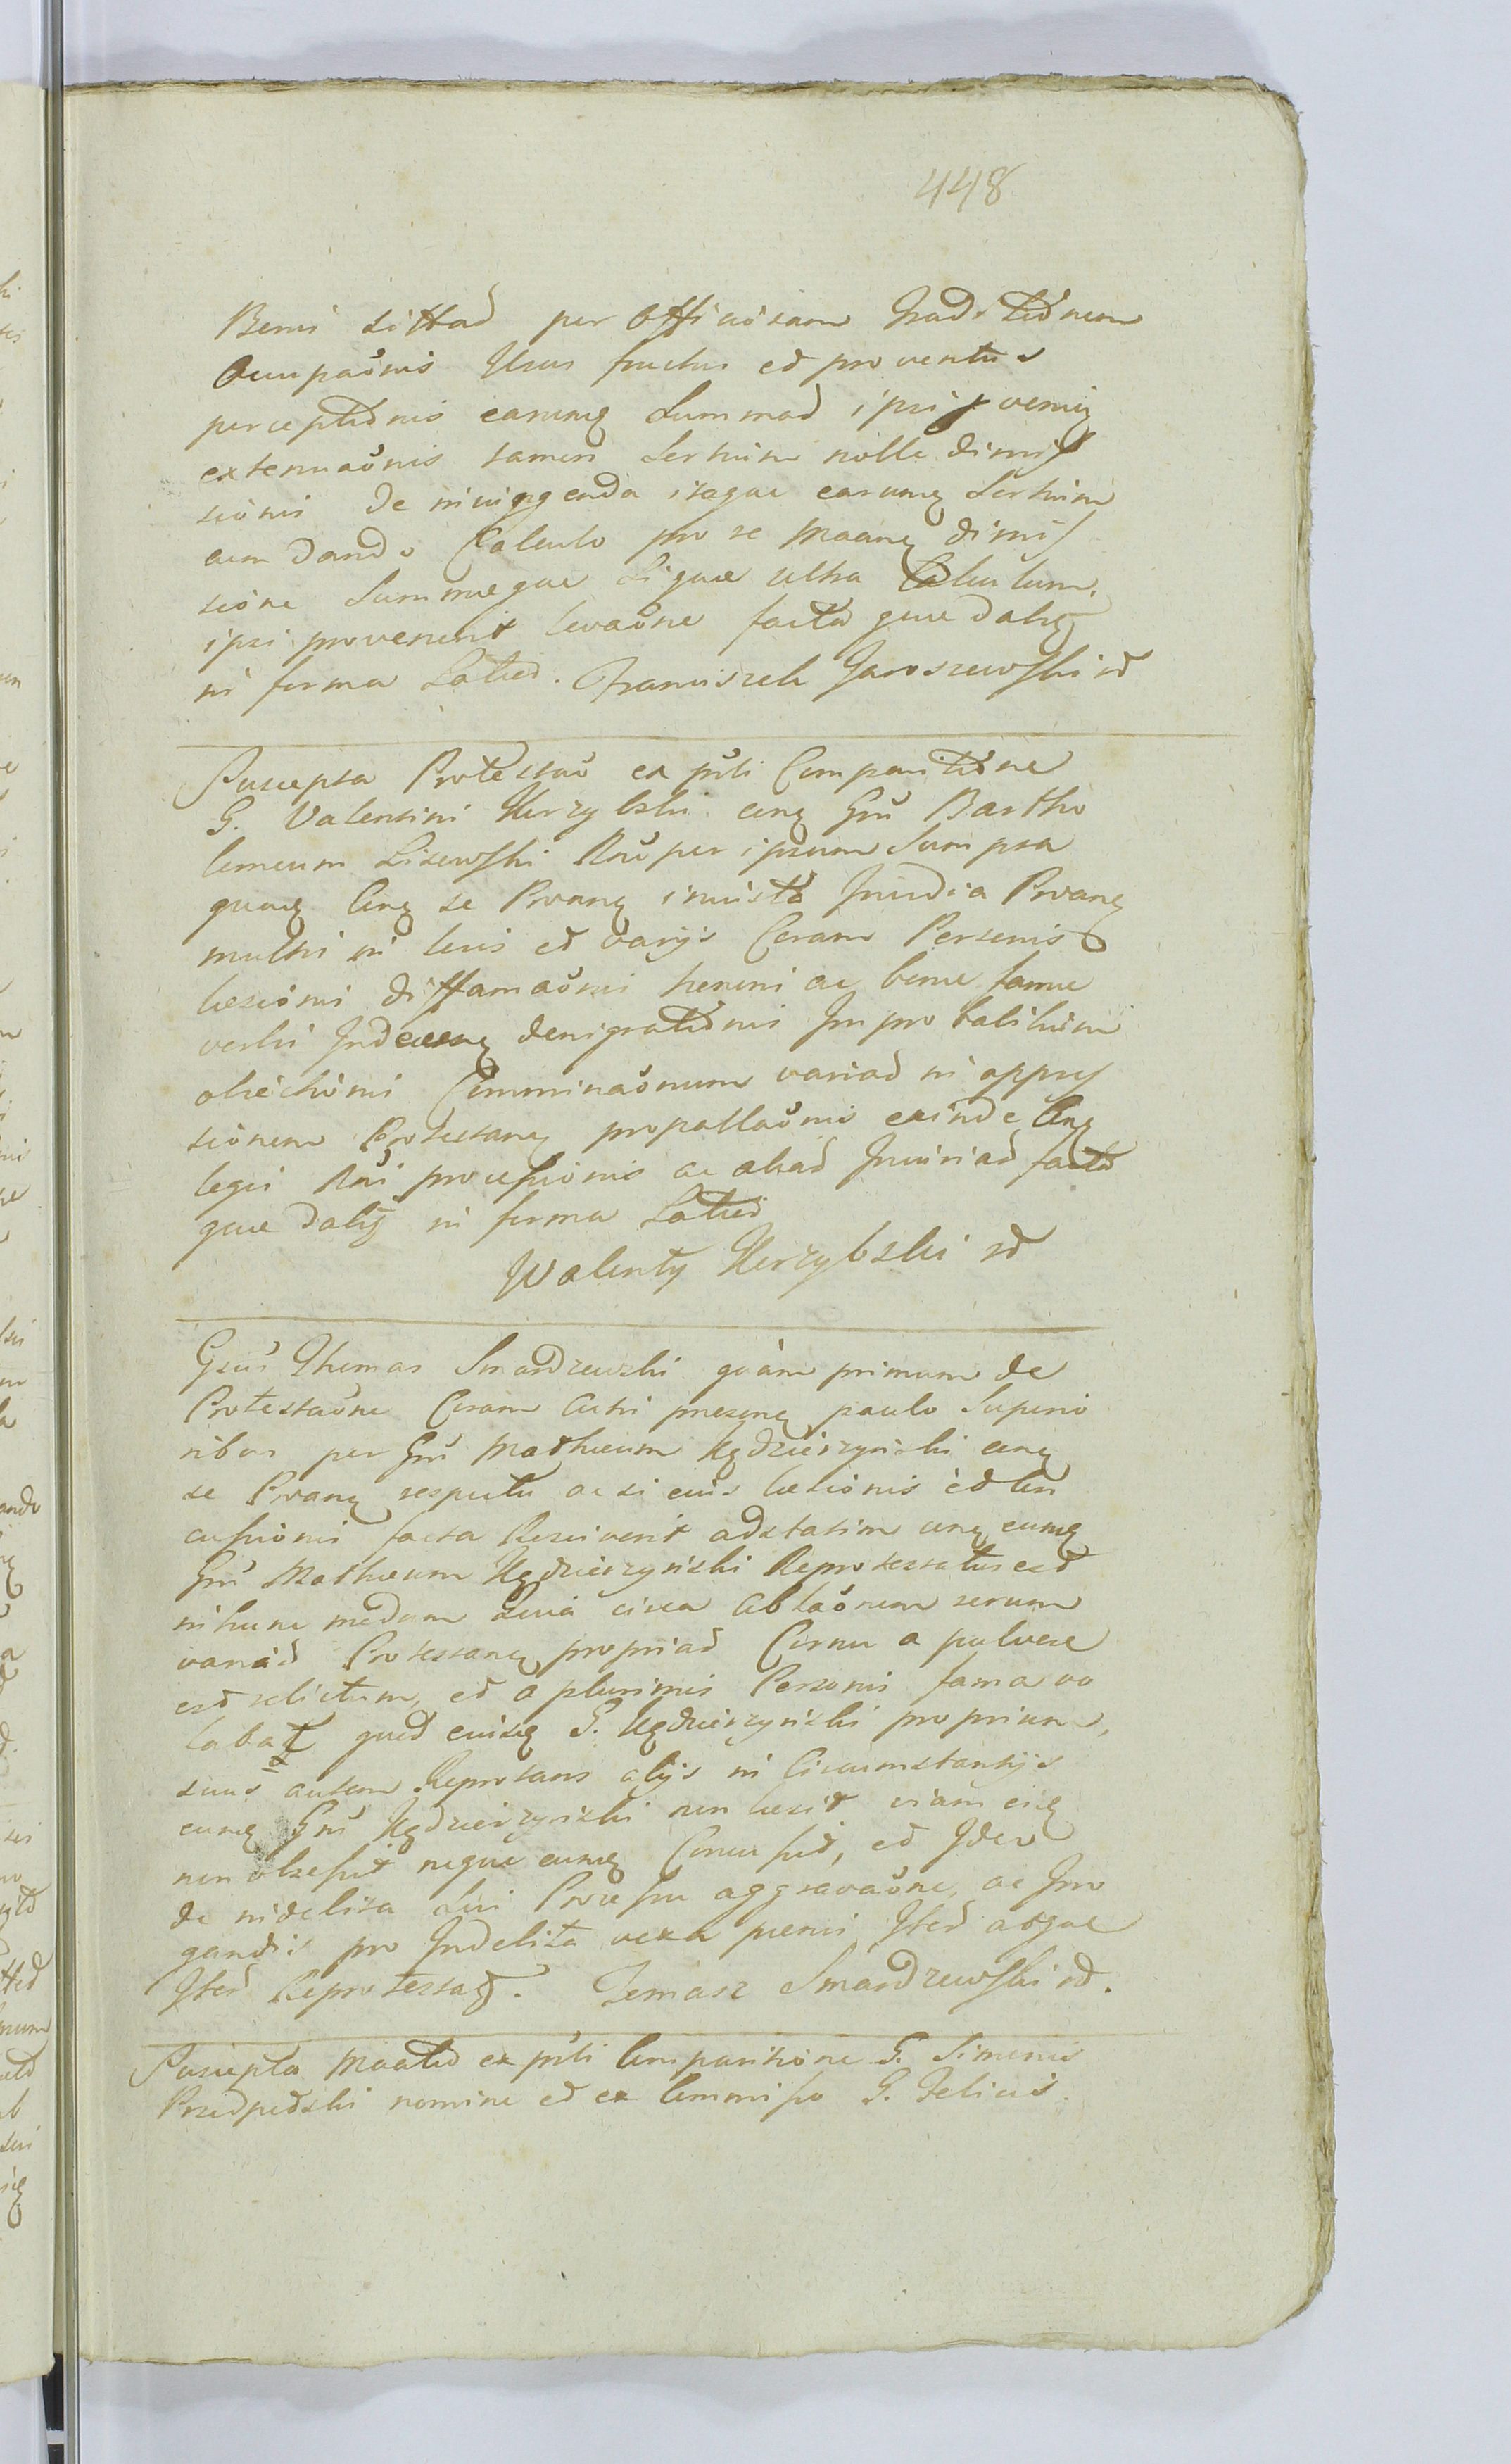 448
Bonis sittad per Officiosam Traditionem
Occupaõnis Usus fructus ed proventus
perceptiõnis earumq Summad ipsi pvenien
extenuaõnis tamen Sortium nolle dimis
sionis De iniungenda itaque earumq Sortium
cum Dando Calculo pro se Maanq dimis
sione Summaeque Siquae ultra Calculum
ipsi provenerit levaõne factã quae dalig
in forma Latiõ. Franciszek Jaroszewski rõ
Suscepta Protestaõ ex põti Comparitiõne
G. Valentini Korzybski cnq Gnũ Bartho
lomeum Lisewski Roũ per ipsum Sumpsa
quaeq Cnq se Prvanq iniusta Invidia Prvanq
multis in locis ed varijs Coram Personis
laesionis diffamaõnis honoris ac bonae famae
verbis Indecenq denigratiõnis Improbalitum
obiectionis Comminaõnum variad in oppres
sionem Protestanq propallaõnis exinde Cnq
legis Roũi processionis ac aliad Iniuriad factõ
quae dalig in forma Latiõ
Walenty Korzybski rõ
Gsũs Thomas Smardzewski quàm primum de
Protestaõne Coram Actis presenq paulo Superio
ribus per Gnũ Mathaeum Kędzierzyński cnq
se Prvanq respectu ac si eius laesionis ed Con
cussionis facta Resciverit adstatim cnq eumq
Gnũ Mathaeum Kędzierzyński Reprotestatus esd
in hunc modum Quia circa Ablaõnem rerum
variad Protestanq propriad Cornu a pulvere
esd relictum, ed a plurimis Personis fama vo
labat quod eiusq G. Kędzierzyński proprium,
suus autem Reprotans alijs in Circumstantijs
eumq Gnũ Kędzierzyński non laesit viam eiq
non obsessit neque eumq Concussid, ed Ideo
de indebita Sui Processu aggravaõne, ac Irro
gandis pro Indebita vexa paenis Iterõ atque
Iterõ Reprotestaõ. Tomasz Smardzewski rõ.
Suscepta Maatiõ ex põti Comparitione G. Simonis
nomine ed ex Commisso G. Felicis